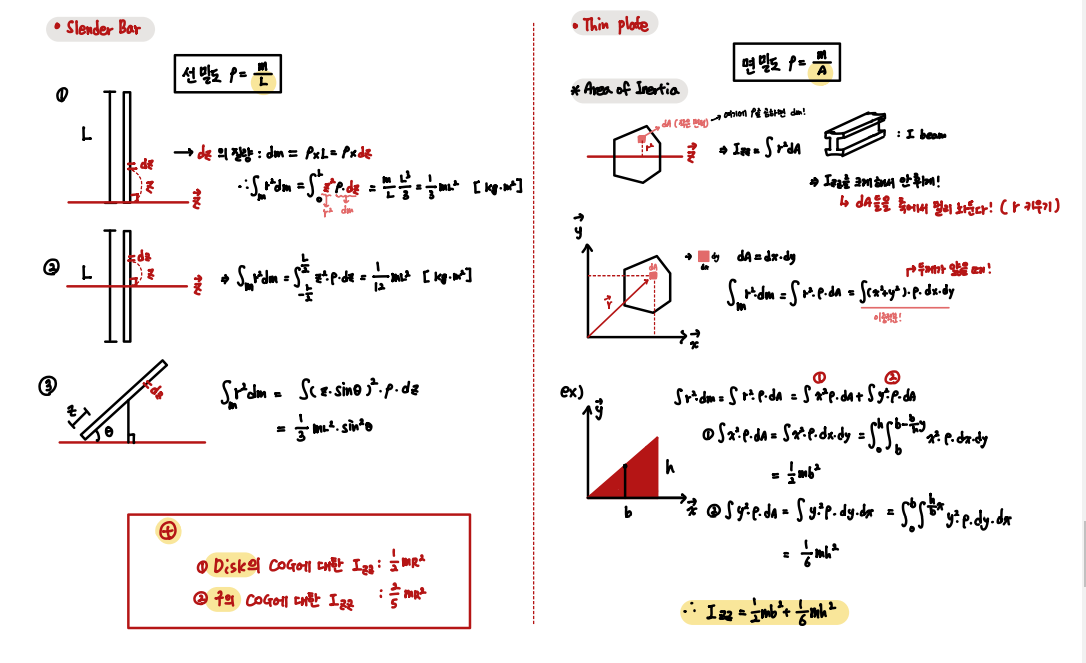 • Slender Bar
선 밀도 ρ = m/L
①
L
dz
z
z
→ dz 의 질량 : dm = ρ×L = ρ×dz
∴ ∫_m r²dm = ∫_0^L z²ρ·dz = m/L L³/3 = 1/3 mL² [kg·m²]
r² dm
②
L
dz
z
z
⇒ ∫_m r²dm = ∫_{-L/2}^{L/2} z²·ρ·dz = 1/12 mL² [kg·m²]
③
z
dz
θ
∫_m r²dm = ∫(z·sinθ)²·ρ·dz
= 1/3 mL²·sin²θ
⊕
① Disk의 COG에 대한 I_zz : 1/2 mR²
② 구의 COG에 대한 I_zz : 2/5 mR²
• Thin plate
면 밀도 ρ = m/A
* Area of Inertia
dA (작은 면적) → 여기에 ρ를 곱하면 dm!
r²
z
⇒ I_zz = ∫r²dA
: I beam
⇒ I_zz를 크게해서 안 휘게!
↳ dA들을 축에서 멀리 놔둔다! (r 키우기)
y
dA
r
x
→ dy
dx
dA = dx·dy
↱ 두께가 얇을 때!
∫_m r²·dm = ∫r²·ρ·dA = ∫(x²+y²)·ρ·dx·dy
이중적분!
ex)
y
h
b
x
① ②
∫r²·dm = ∫r²·ρ·dA = ∫x²ρ·dA + ∫y²ρ·dA
① ∫x²·ρ·dA = ∫x²·ρ·dx·dy = ∫_0^h ∫_b^{b-b/h y} x²·ρ·dx·dy
= 1/2 mb²
② ∫y²·ρ·dA = ∫y²·ρ·dy·dx = ∫_0^b ∫_0^{h/b x} y²·ρ·dy·dx
= 1/6 mh²
∴ I_zz = 1/2 mb² + 1/6 mh²